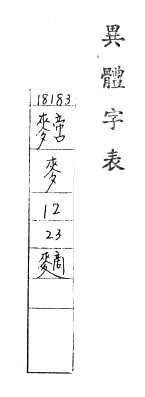 異體字表
18183
麥
12
23